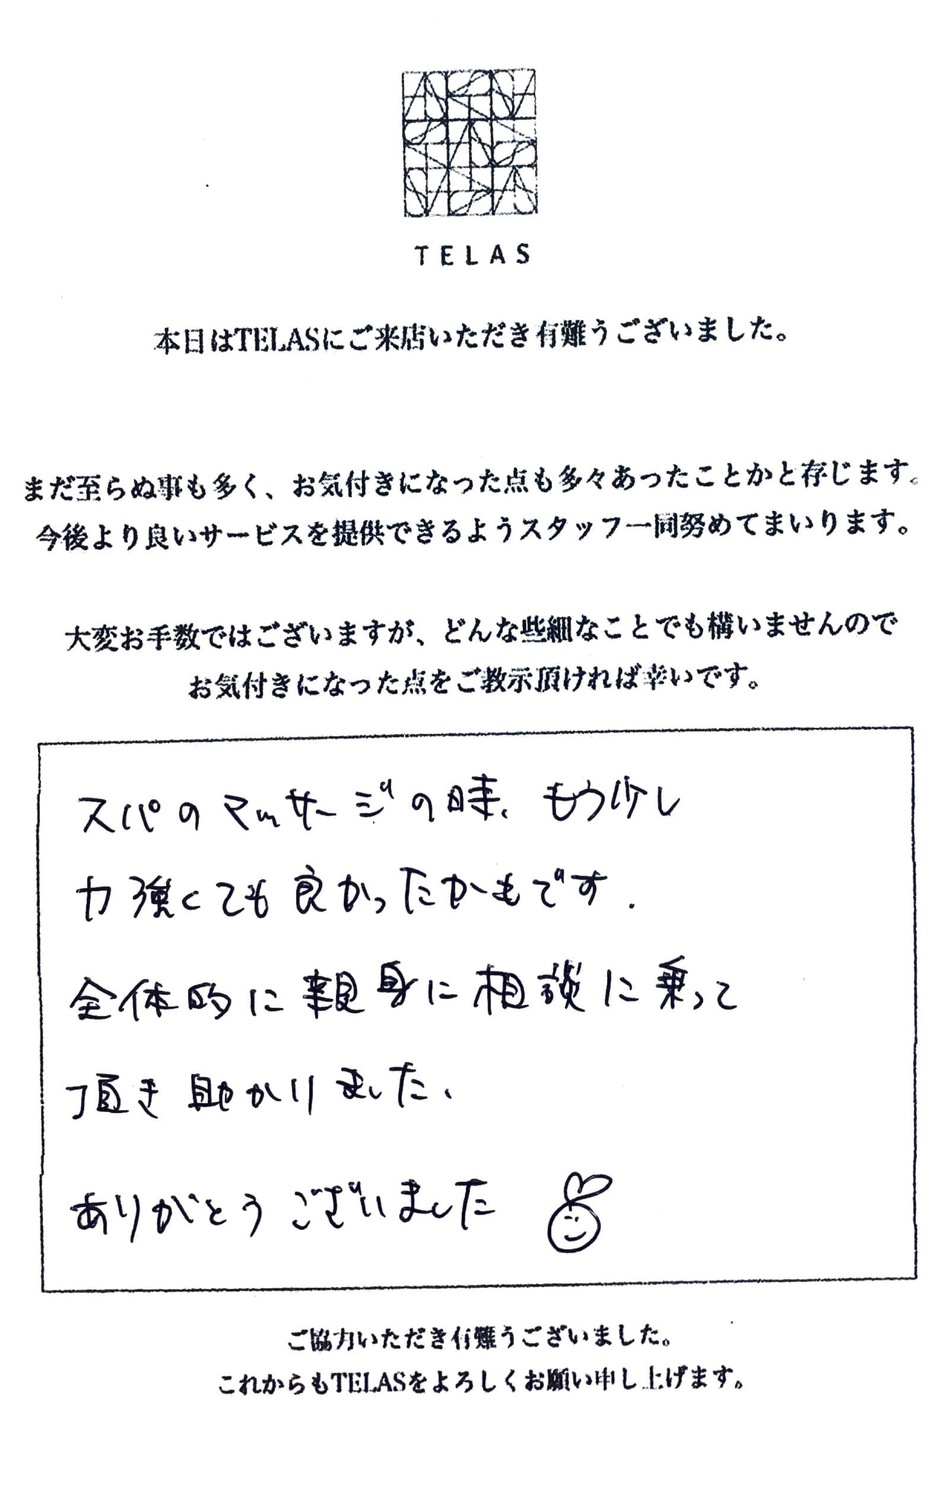 TELAS
本日はTELASにご来店いただき有難うございました。
まだ至らぬ事も多く、お気付きになった点も多々あったことかと存じます。
今後より良いサービスを提供できるようスタッフ一同努めてまいります。
大変お手数ではございますが、どんな些細なことでも構いませんので
お気付きになった点をご教示頂ければ幸いです。
スパのマッサージの時、もう少し
力強くても良かったかもです.
全体的に親身に相談に乗って
頂き助かりました、
ありがとうございました
ご協力いただき有難うございました。
これからもTELASをよろしくお願い申し上げます。